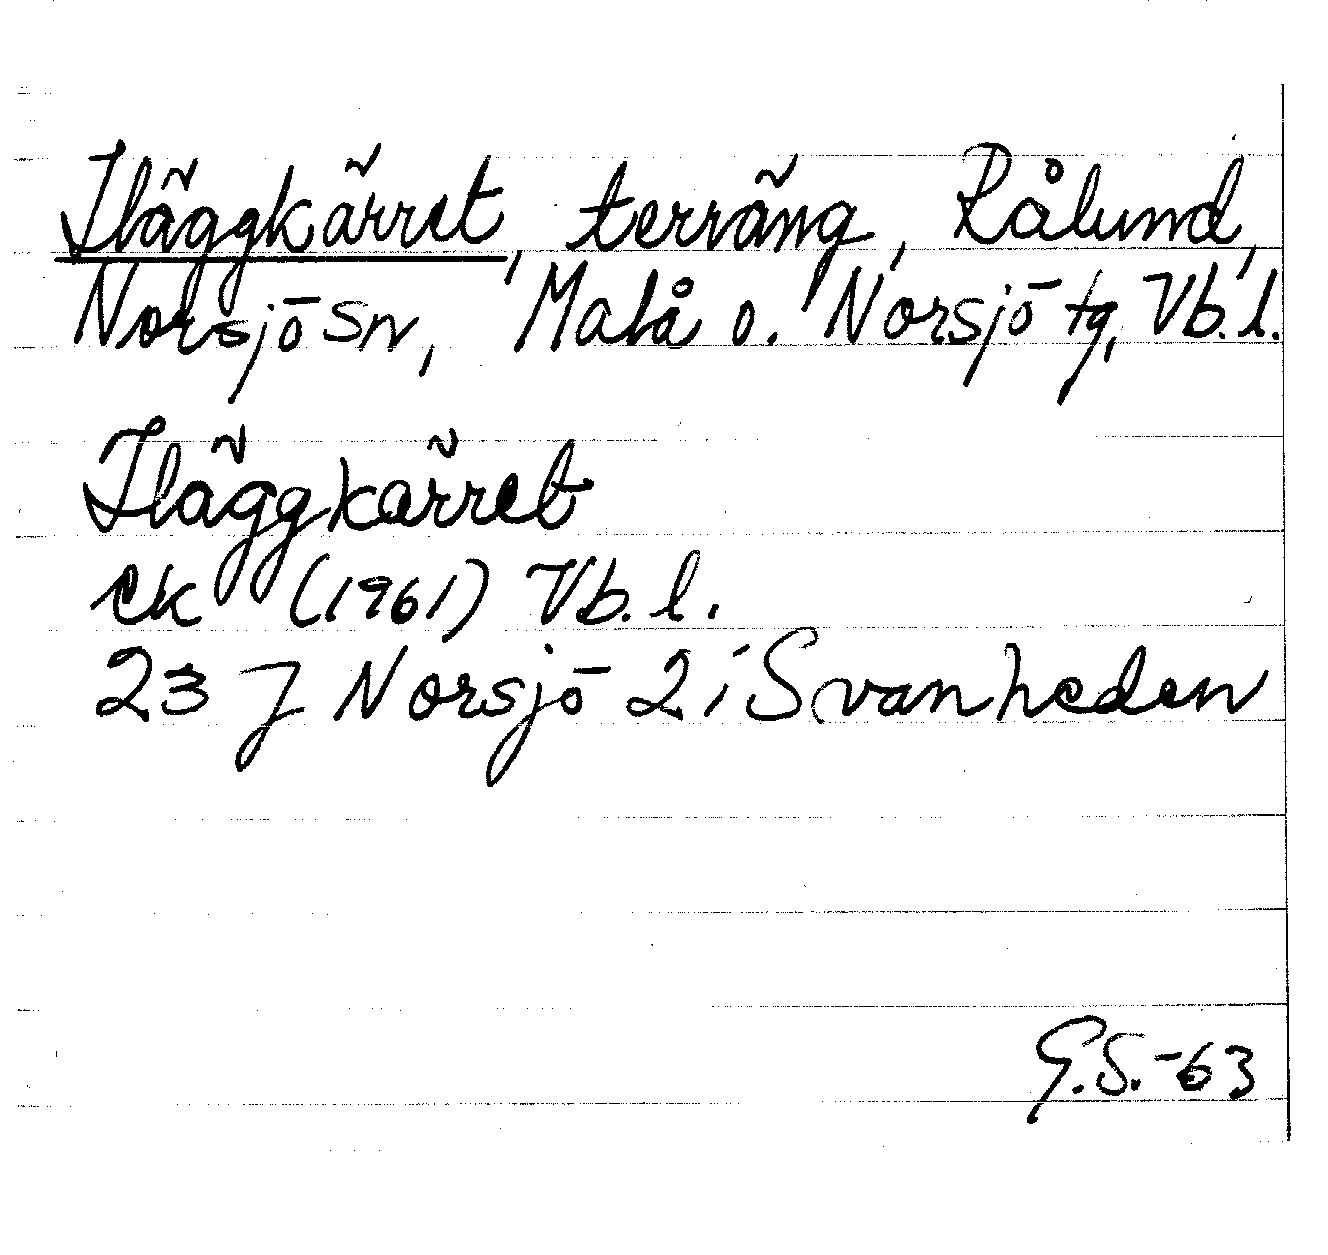 Iläggkärret, terräng, Rålund,
Norsjö sn, Malå o. Norsjö tg, Vb. l.
Iläggkärret
ek (1961) Vb. l.
23 J Norsjö 2 i Svanheden
G.S.-63